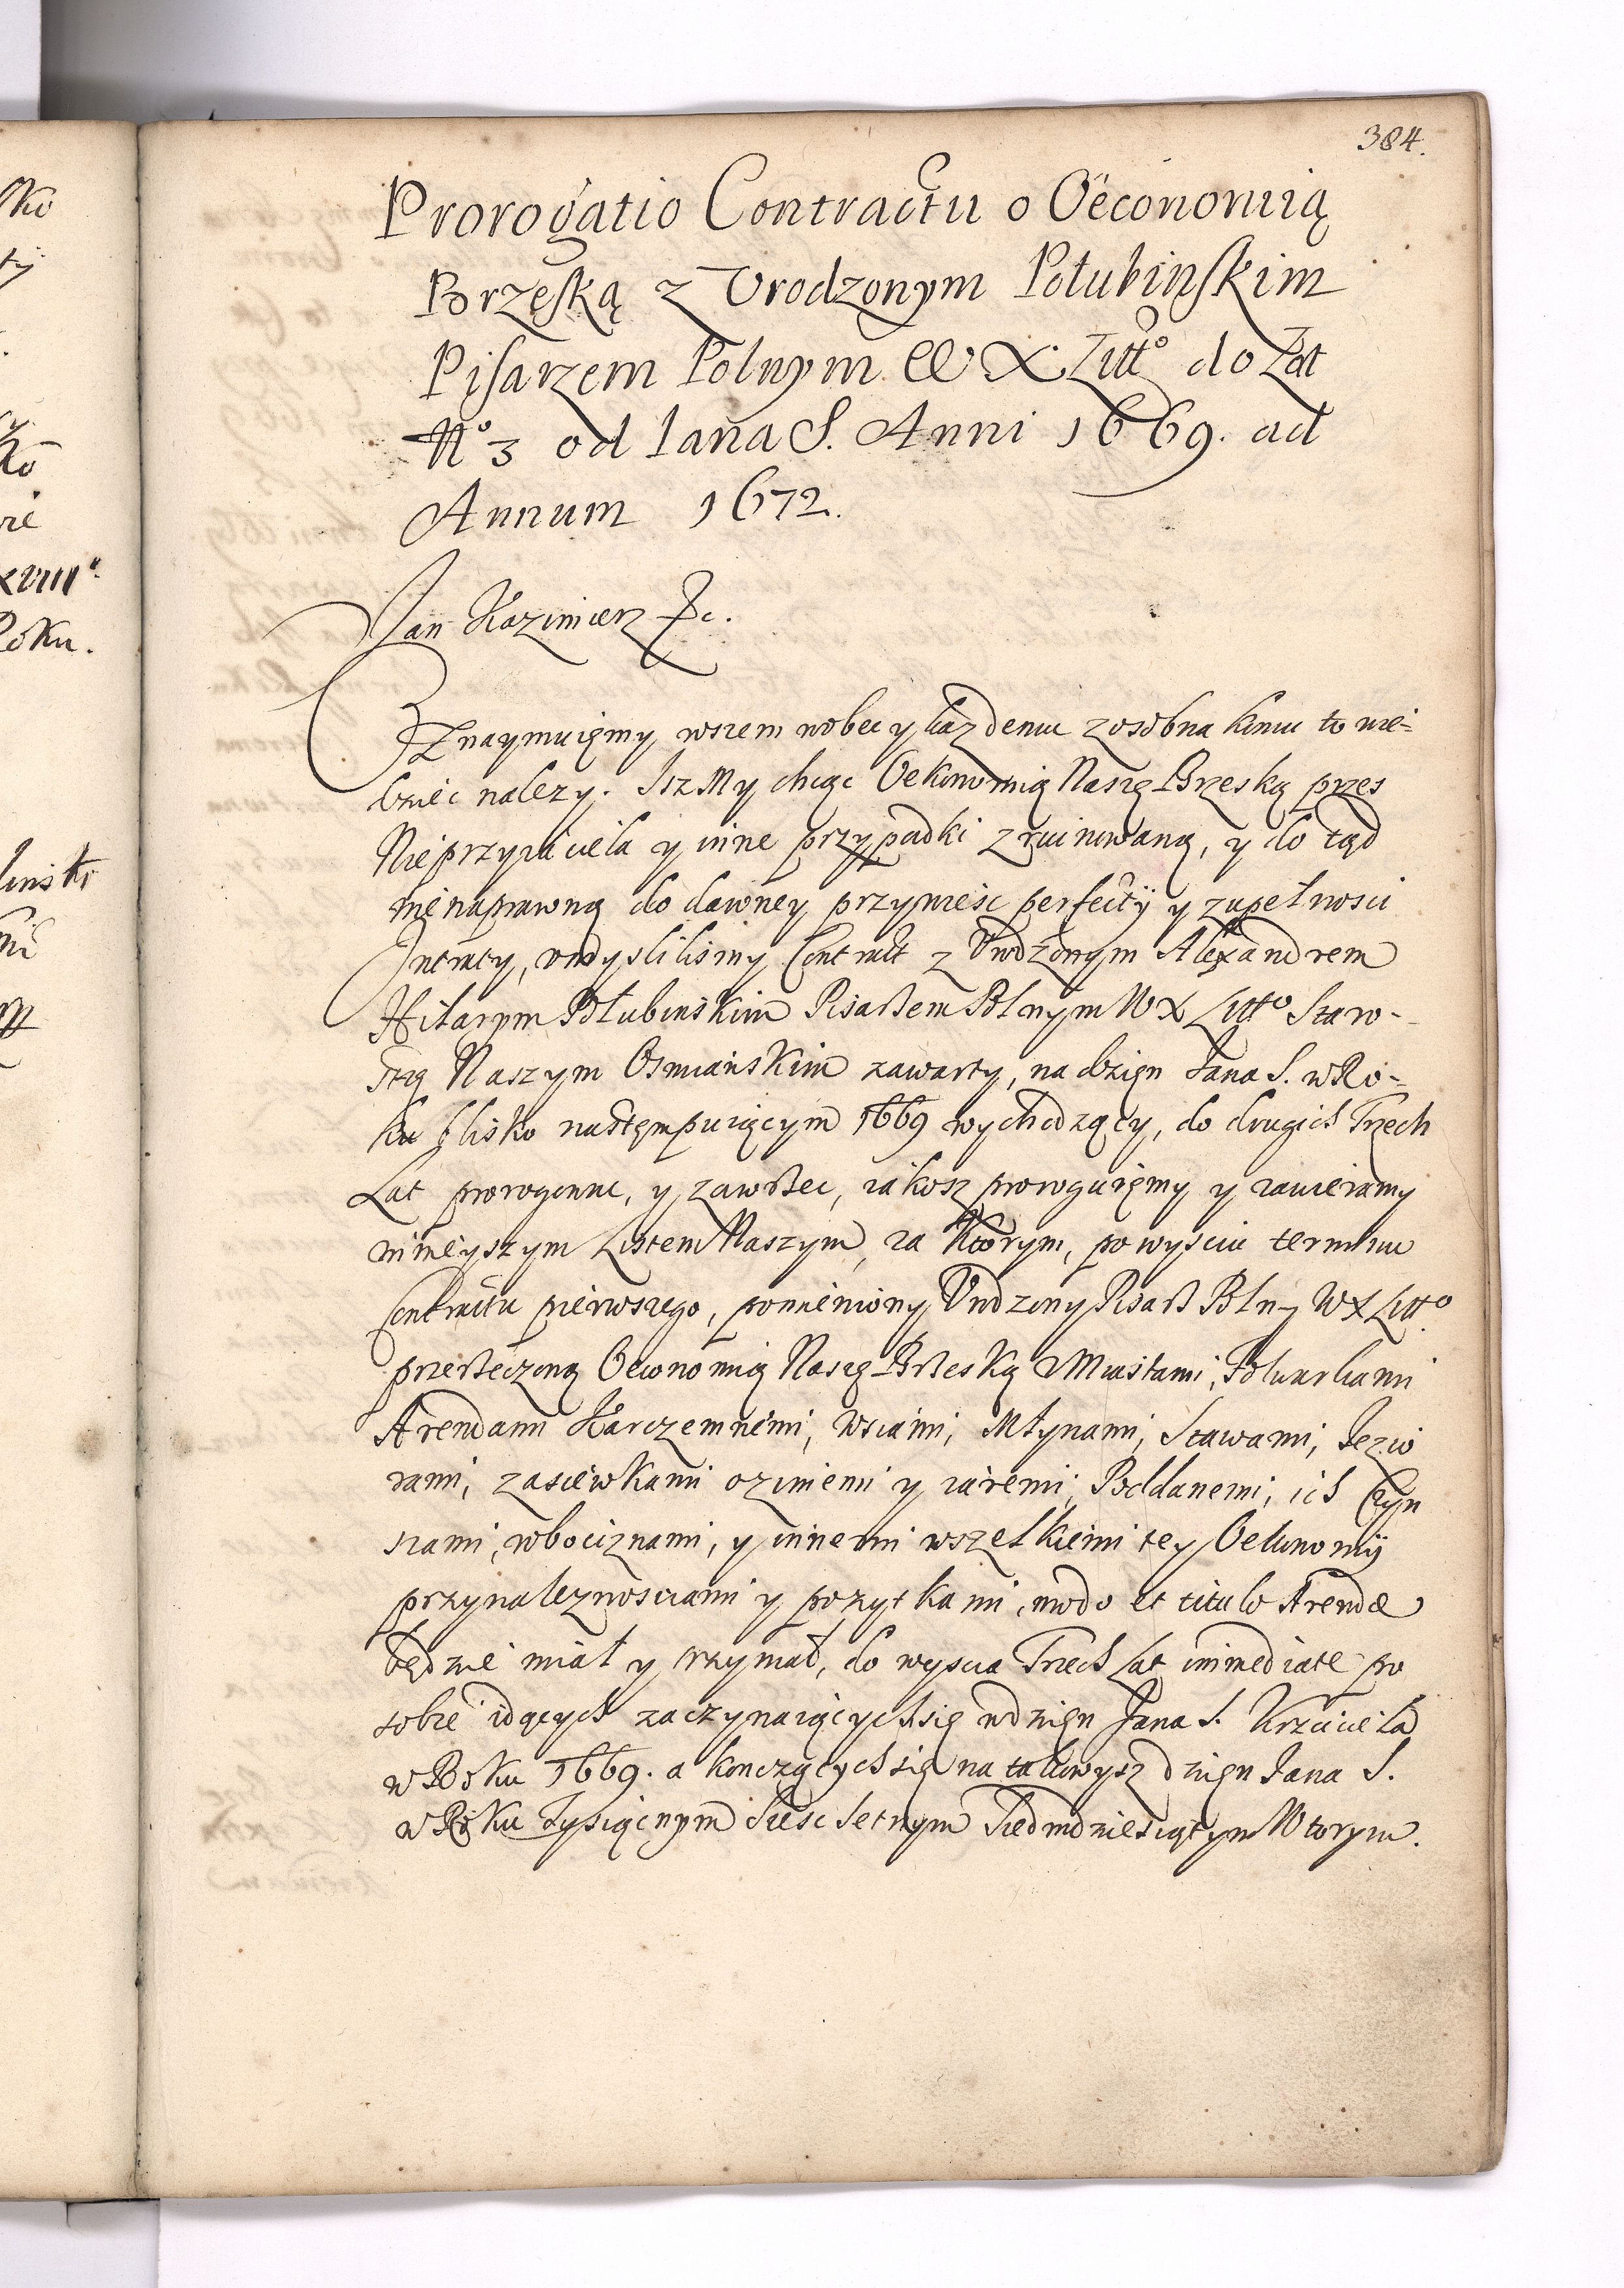 384.
Prorogatio Contractu o Oëconomią
Brzeską z Vrodzonym Połubinskim
Pisarzem Polnym W X Litto do Lat
No 3 od Iana S. Anni 1669. ad
Annum 1672.
Jan Kazimierz &c.
Oznaymuięmy wszem wobec y każdemu zosobna komu to wie=
dziec nalezy. Isz My chcąc Oekonomią Naszą Brzeską przes
Nieprzyiaciela y inne przypadki zruinowaną, y do tąd
nienaprawną do dawney przyniesc perfectÿ y zupełnosci
Intraty, vmyslilismy Contract z Vrodzonym Alexandrem
Hilarym Połubinskim Pisarzem Polnym W X Litto Staro-
stą Naszym Osmianskim zawarty, na dzięn Iana S. w Ro-
ku blisko następuiącym 1669 wychodzący, do drugich Trzech
Lat prorogowac, y zawrzec, iakosz proroguięmy y zawieramy
ninieyszym Listem Naszym, za Ktorym, po wysciu terminu
Contractu pierwszego, pomieniony Vrodzony Pisarz Polny W X Litto.
przerzeczoną Oeconomią Naszą Brzeską z Miastami, Folwarkami
Arendami Karczemnemi, Wsiami, Młynami, Stawami, Iezio
rami, zasiewkami oziniemi y iaremi, Poddanemi, ich Czyn
szami, robociznami, y innemi wszelkiemi tey Oekonomÿ
przynaleznosciami y pozytkami, modo et titulo Arendæ
będzie miał y trzymał, do wyscia Trzech Lat immediate po
sobie idących zaczynaiących się od dzięn Jana S. Krzciciela
w Roku 1669. a konczących się na takowysz dzięn Iana S.
w Roku Tysiącnym Szesc Setnym Siedmdziesiątym Wtorym.